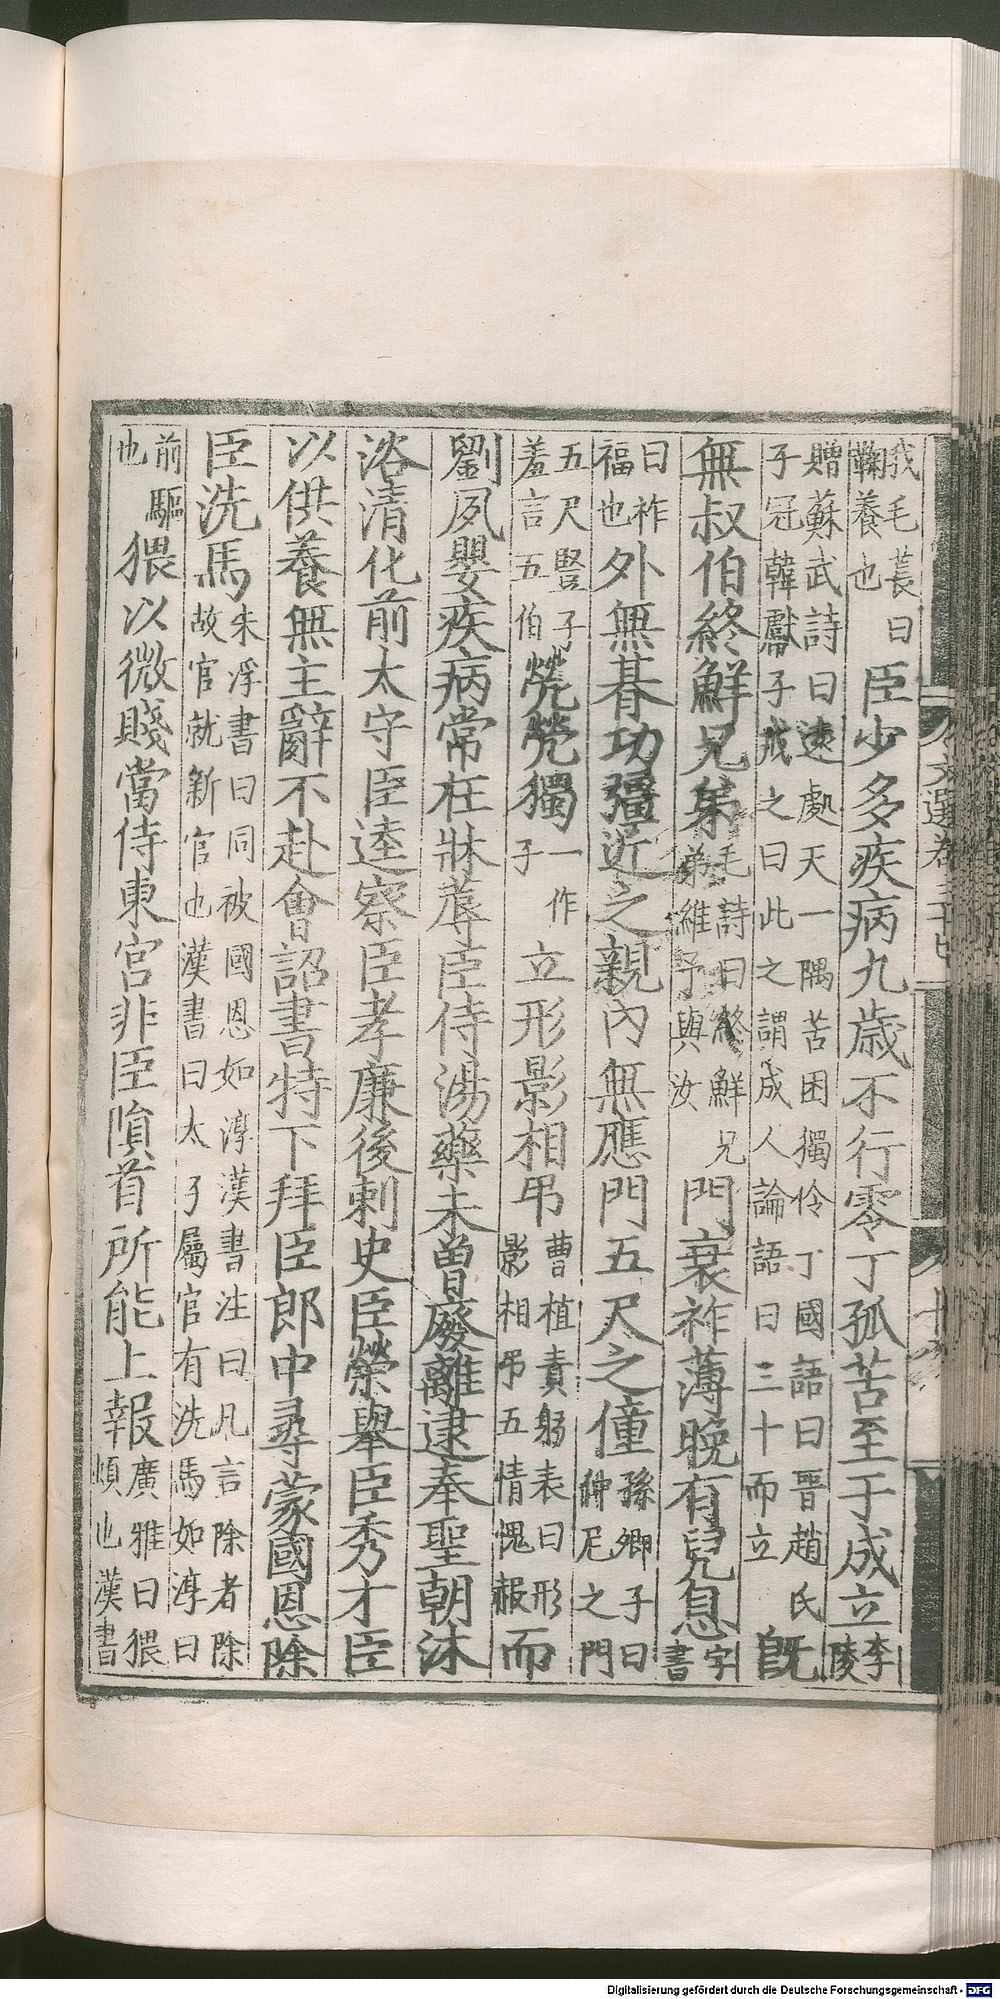 我毛萇曰鞠養也臣少多疾病九歲不行零丁孤苦至于成立李陵
贈蘇武詩曰遠處天一隅苦困獨伶丁國語曰晉趙氏子冠韓獻子戒之曰此之謂成人論語曰三十而立旣
無叔伯終鮮兄弟毛詩曰終鮮兄弟維予與汝門衰祚薄晚有兒息字書
曰祚福也外無朞功彊近之親內無應門五尺之僮孫卿子曰仲尼之門
五尺豎子羞言五伯煢煢獨一作子立形影相弔曹植責躬表曰形影相弔五情愧赧而
劉夙嬰疾病常在牀蓐臣侍湯藥未曾廢離逮奉聖朝沐
浴清化前太守臣逵察臣孝廉後刺史臣榮舉臣秀才臣
以供養無主辭不赴會詔書特下拜臣郎中尋蒙國恩除
臣洗馬朱浮書曰同被國恩如淳漢書注曰凡言除者除故官就新官也漢書曰太子屬官有洗馬如淳曰
前驅也猥以微賤當侍東宮非臣隕首所能上報廣雅曰猥頓也漢書
Digitalisierung gefördert durch die Deutsche Forschungsgemeinschaft - DFG